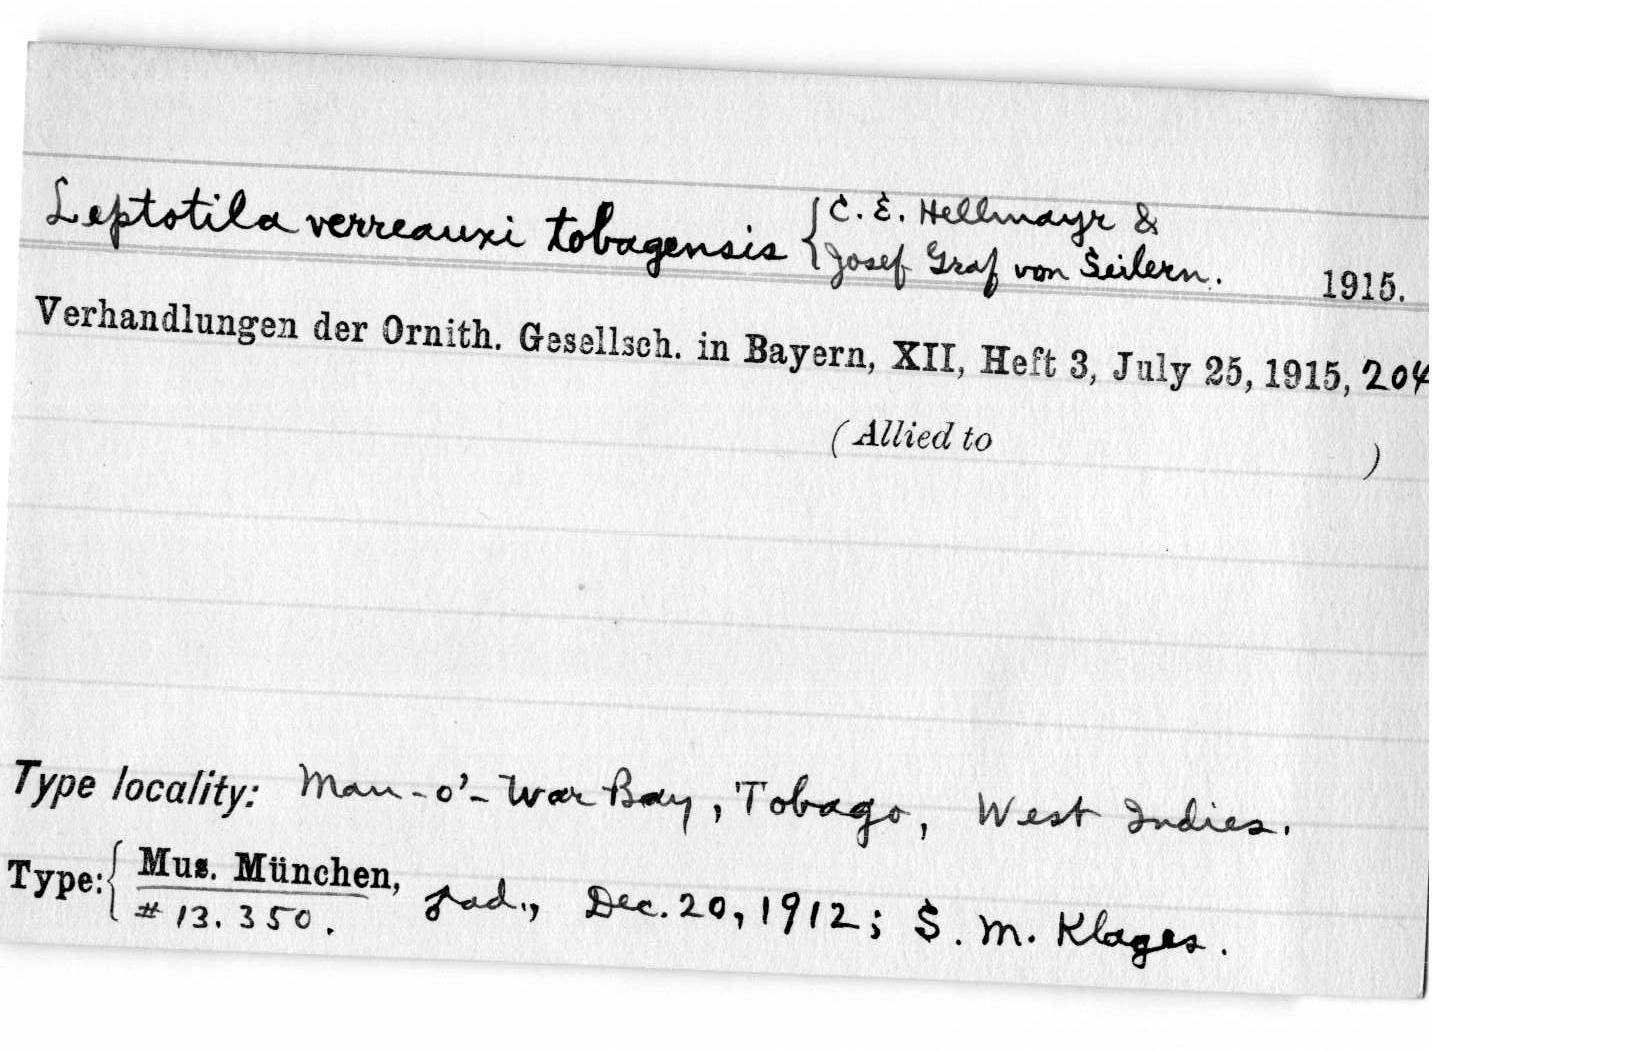 Leptotila verreauxi tobagensis { C. E. Hellmayr &
Josef Graf von Seilern. 1915.
Verhandlungen der Ornith. Gesellsch. in Bayern, XII, Heft 3, July 25, 1915, 204
(Allied to )
Type locality: Man-o'-War Bay, Tobago, West Indies.
Type: { Mus. München, ad., Dec. 20, 1912; S. M. Klages.
# 13.350.